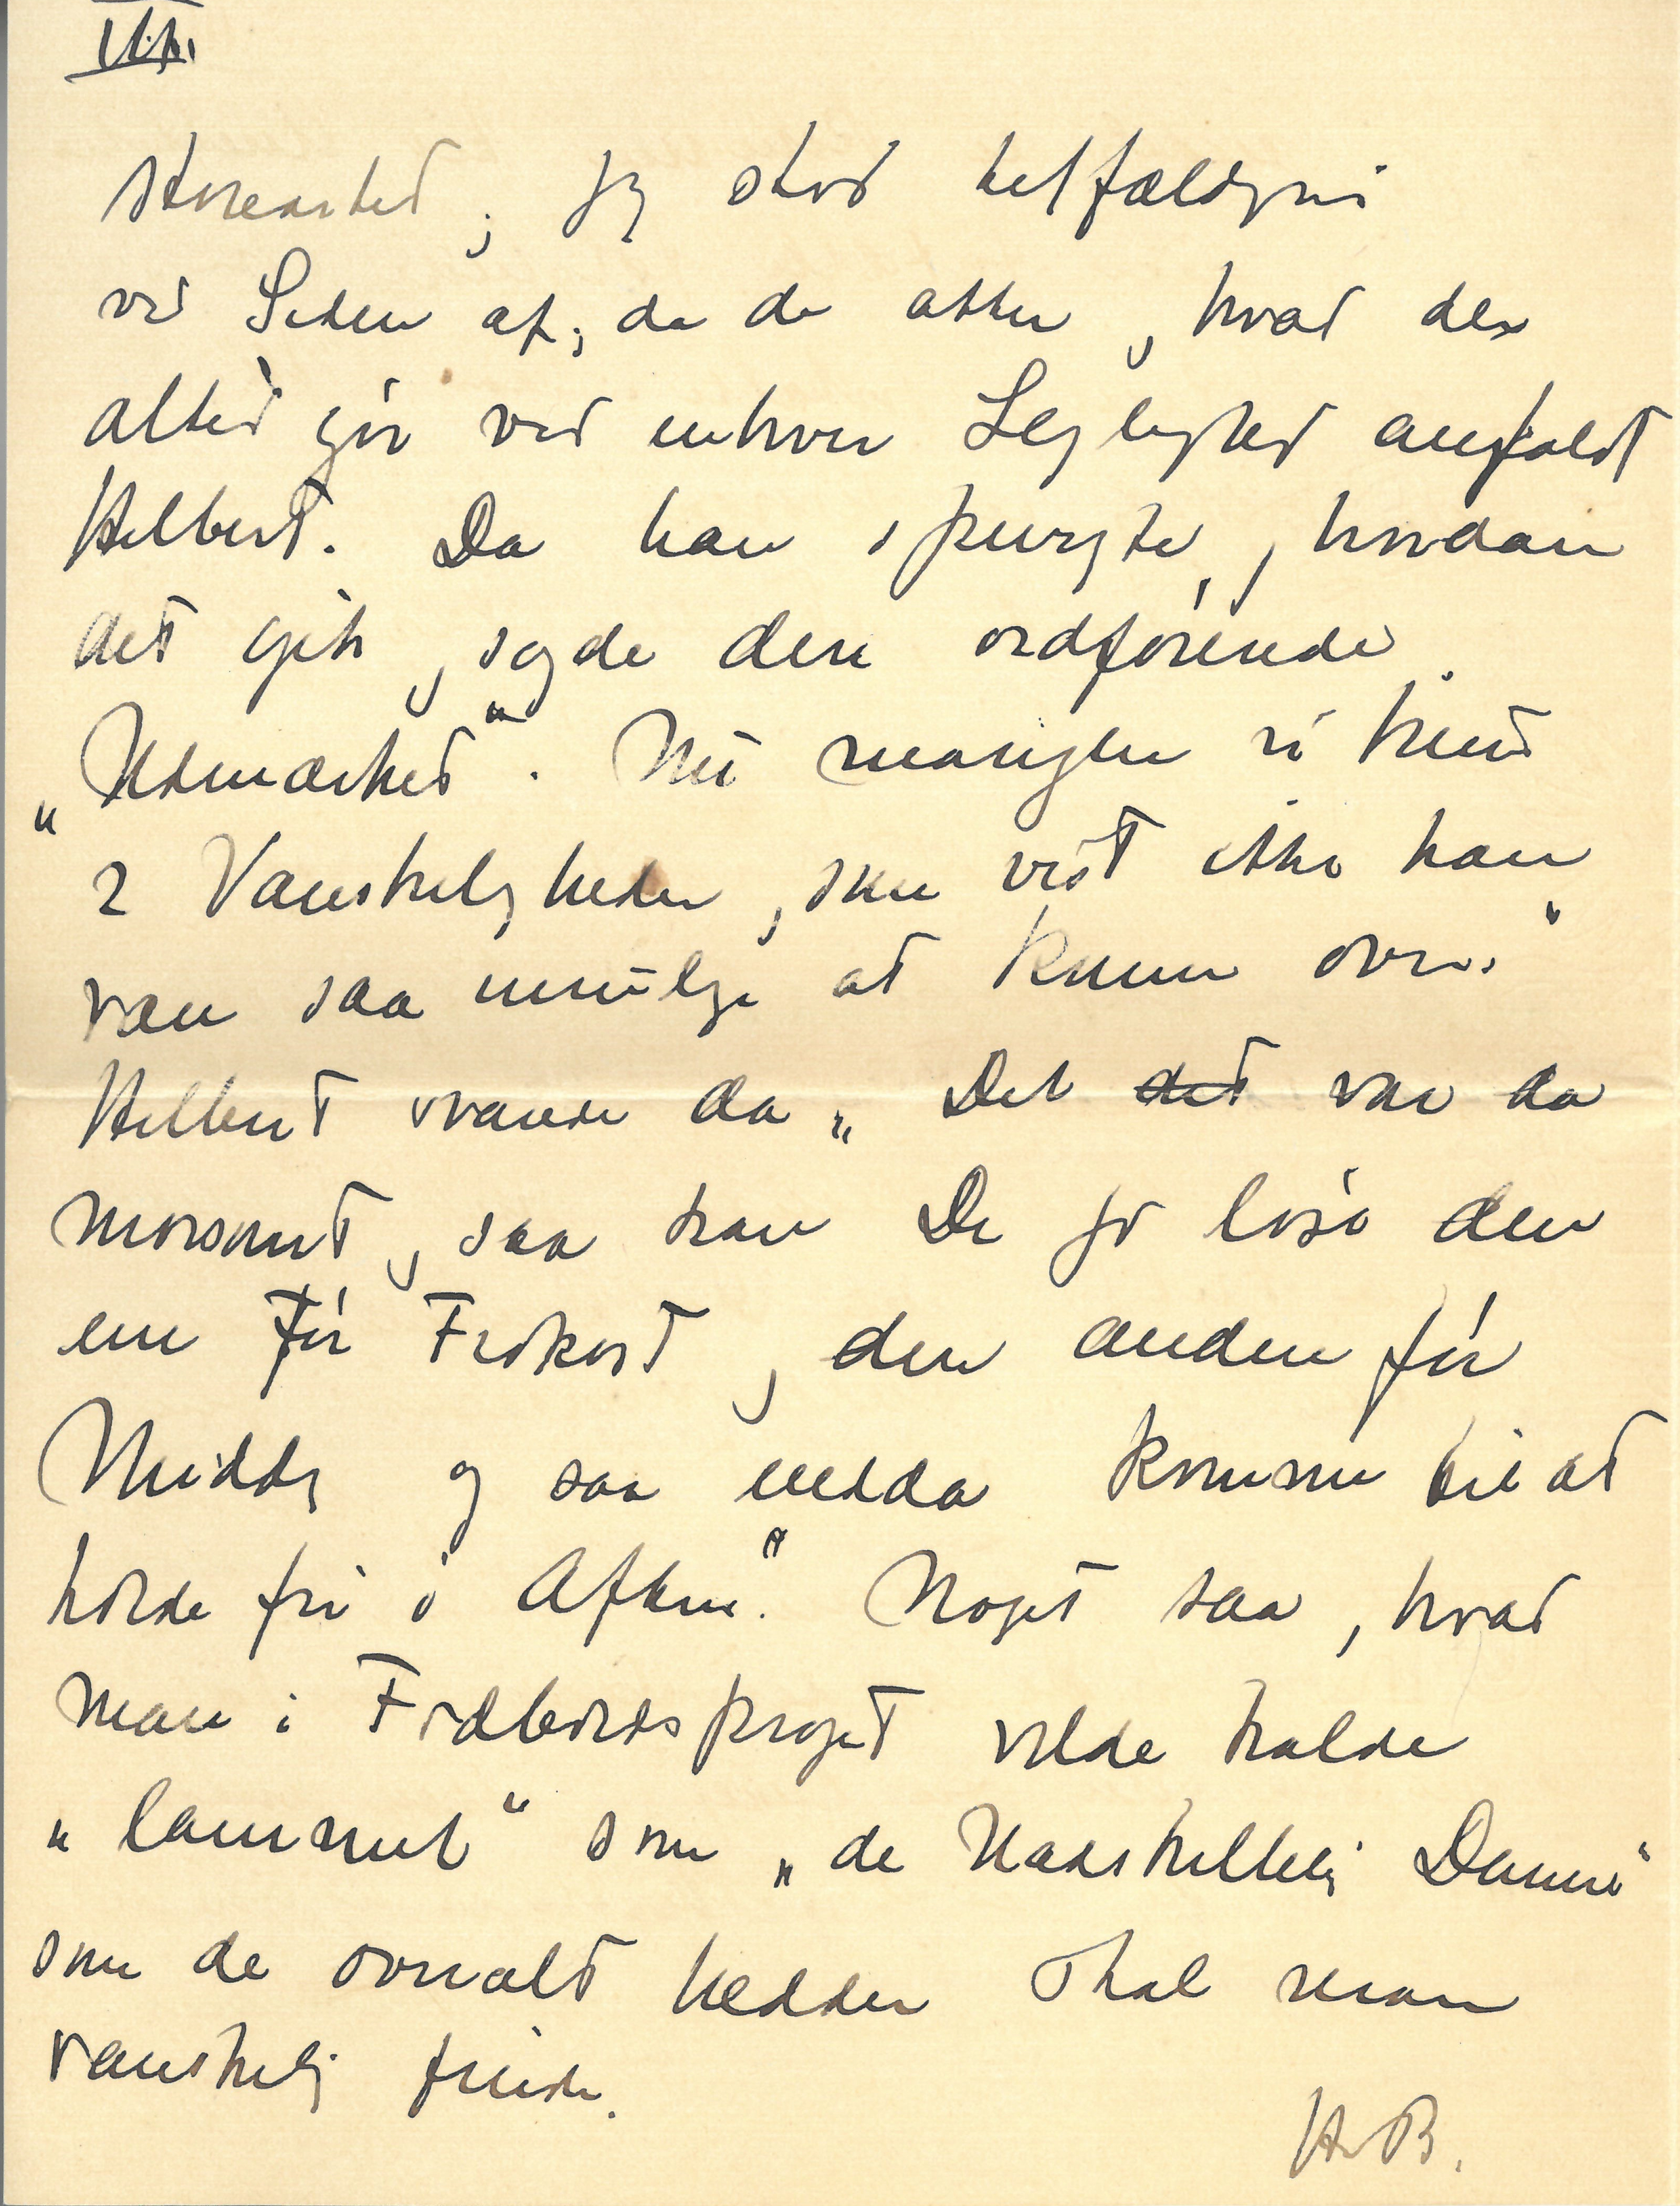 VII.
storartet, jeg stod tilfældigvis
ved Siden af, da de atter, hvad der
altid gør ved enhver Lejlighed anfaldt
Hilbert. Da han spurgte, hvordan
det gik, sagde den ordførende
„Udmærket“. Nu mangler vi kun
2 Vanskeligheder, som vist ikke kan
være saa umulige at komme over.“
Hilbert svarede da „Det det var da
morsomt, saa kan De jo løse den
ene før Frokost, den anden før
Middag og saa endda komme til at
holde fri i Aften.“ Noget saa, hvad
man i Fodboldsproget vilde kalde
„lammet“ som „de Damer“
som de overalt hedder skal man
vanskelig finde.
H.B.